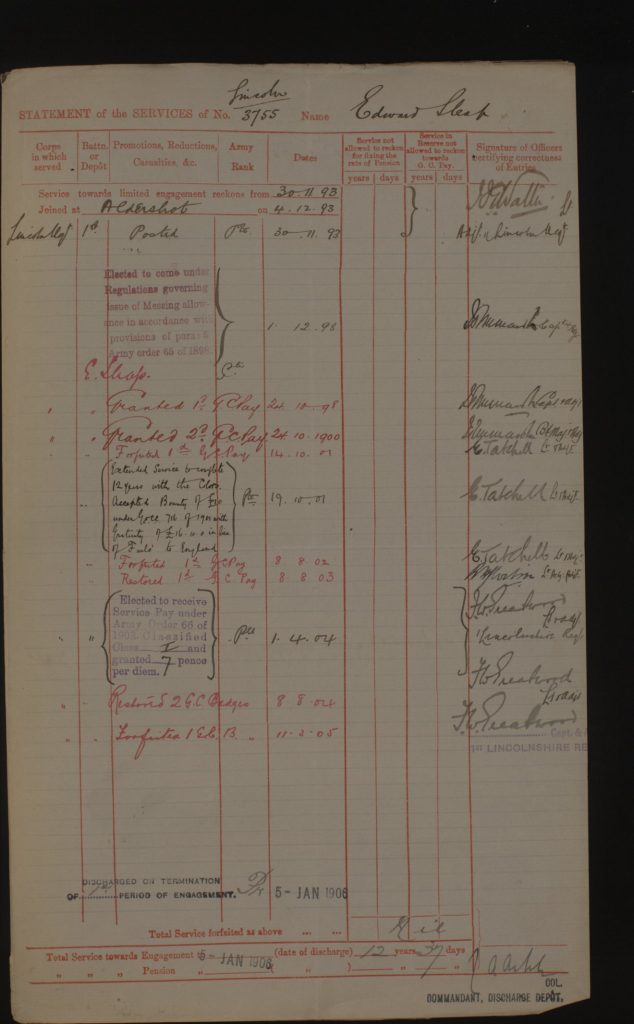 Lincoln
STATEMENT of the SERVICES of No. 3755 Name Edward Sleap
Corps in which served
Battn. or Depôt
Promotions, Reductions, Casualties, &c.
Army Rank
Dates
Service not allowed to reckon for fixing the rate of Pension
Service in Reserve not allowed to reckon towards G. C. Pay.
Signature of Officers certifying correctness of Entries
years days years days
Service towards limited engagement reckons from 30.11.93
Joined at Aldershot on 4.12.93
Lincoln Rgt 1st Posted Pte 30.11.93 Adjt Lincoln Regt
Elected to come under
Regulations governing
issue of Messing allow-
ance in accordance with
provisions of para
Army order 65 of 1898
1 12.98
E. Sleap. Pte
" " Granted 1st GC Pay 24.10.98
" " Granted 2d GC Pay 24.10.1900
Forfeited 1st GC Pay 14.10.01
Extended Service to complete
12 years with the Colors
Accepted Bounty of £
under
Gratuity of £16.0.0 in lieu
of Furlo' to England
Pte 19.10.01 E. Tatchell Lt
Forfeited 1st GC Pay 8.8.02 E. Tatchell Lt
Restored 1st G C Pay 8.8.03
Elected to receive
Service Pay under
Army Order 66 of
1902. Classified
Class I and
granted 7 pence
per diem.
" " Pte 1.4.04 F.W. Greatwood
Lincolnshire Regt
Restored 2 G.C. Badges 8.8.04 F.W. Greatwood
" " Forfeited 1 G.C. B. " 11.3.05 F.W. Greatwood
Capt. &
1ST LINCOLNSHIRE RE
DISCHARGED ON TERMINATION
OF 1st PERIOD OF ENGAGEMENT. Pte 5-JAN 1906
Total Service forfeited as above ... ... Nil
Total Service towards Engagement 5-JAN 1906 (date of discharge) 12 years 37 days
" " Pension " ( " " )
COL.
COMMANDANT, DISCHARGE DEPÔT.